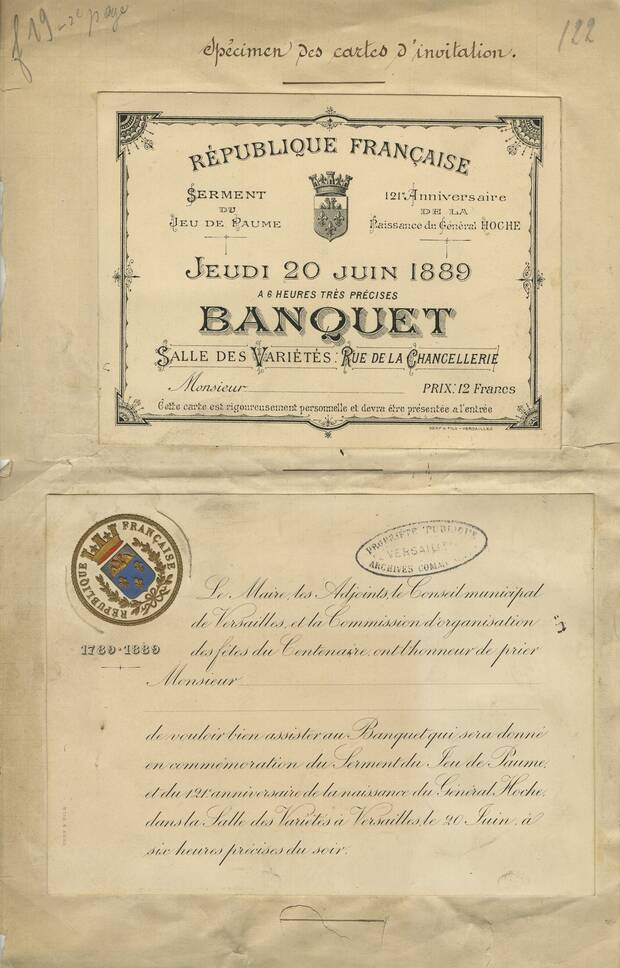 f 19 - 2e page
122
Spécimen des cartes d'invitation.
RÉPUBLIQUE FRANÇAISE
SERMENT
DU
JEU DE PAUME
121e Anniversaire
DE LA
Naissance du Général HOCHE
JEUDI 20 JUIN 1889
A 6 HEURES TRÈS PRÉCISES
BANQUET
SALLE DES VARIÉTÉS: RUE DE LA CHANCELLERIE
Monsieur
PRIX: 12 Francs
Cette carte est rigoureusement personnelle et devra être présentée a l'entrée
CERF & FILS - VERSAILLES
RÉPUBLIQUE FRANÇAISE
1789·1889
PROPRIÉTÉ PUBLIQUE
VERSAILLES
ARCHIVES COMM
Le Maire, les Adjoints, le Conseil municipal
de Versailles, et la Commission d'organisation
des fêtes du Centenaire, ont l'honneur de prier
Monsieur
de vouloir bien assister au Banquet qui sera donné
en commémoration du Serment du Jeu de Paume,
et du 121e anniversaire de la naissance du Général Hoche,
dans la Salle des Variétés à Versailles, le 20 Juin, à
six heures précises du soir.